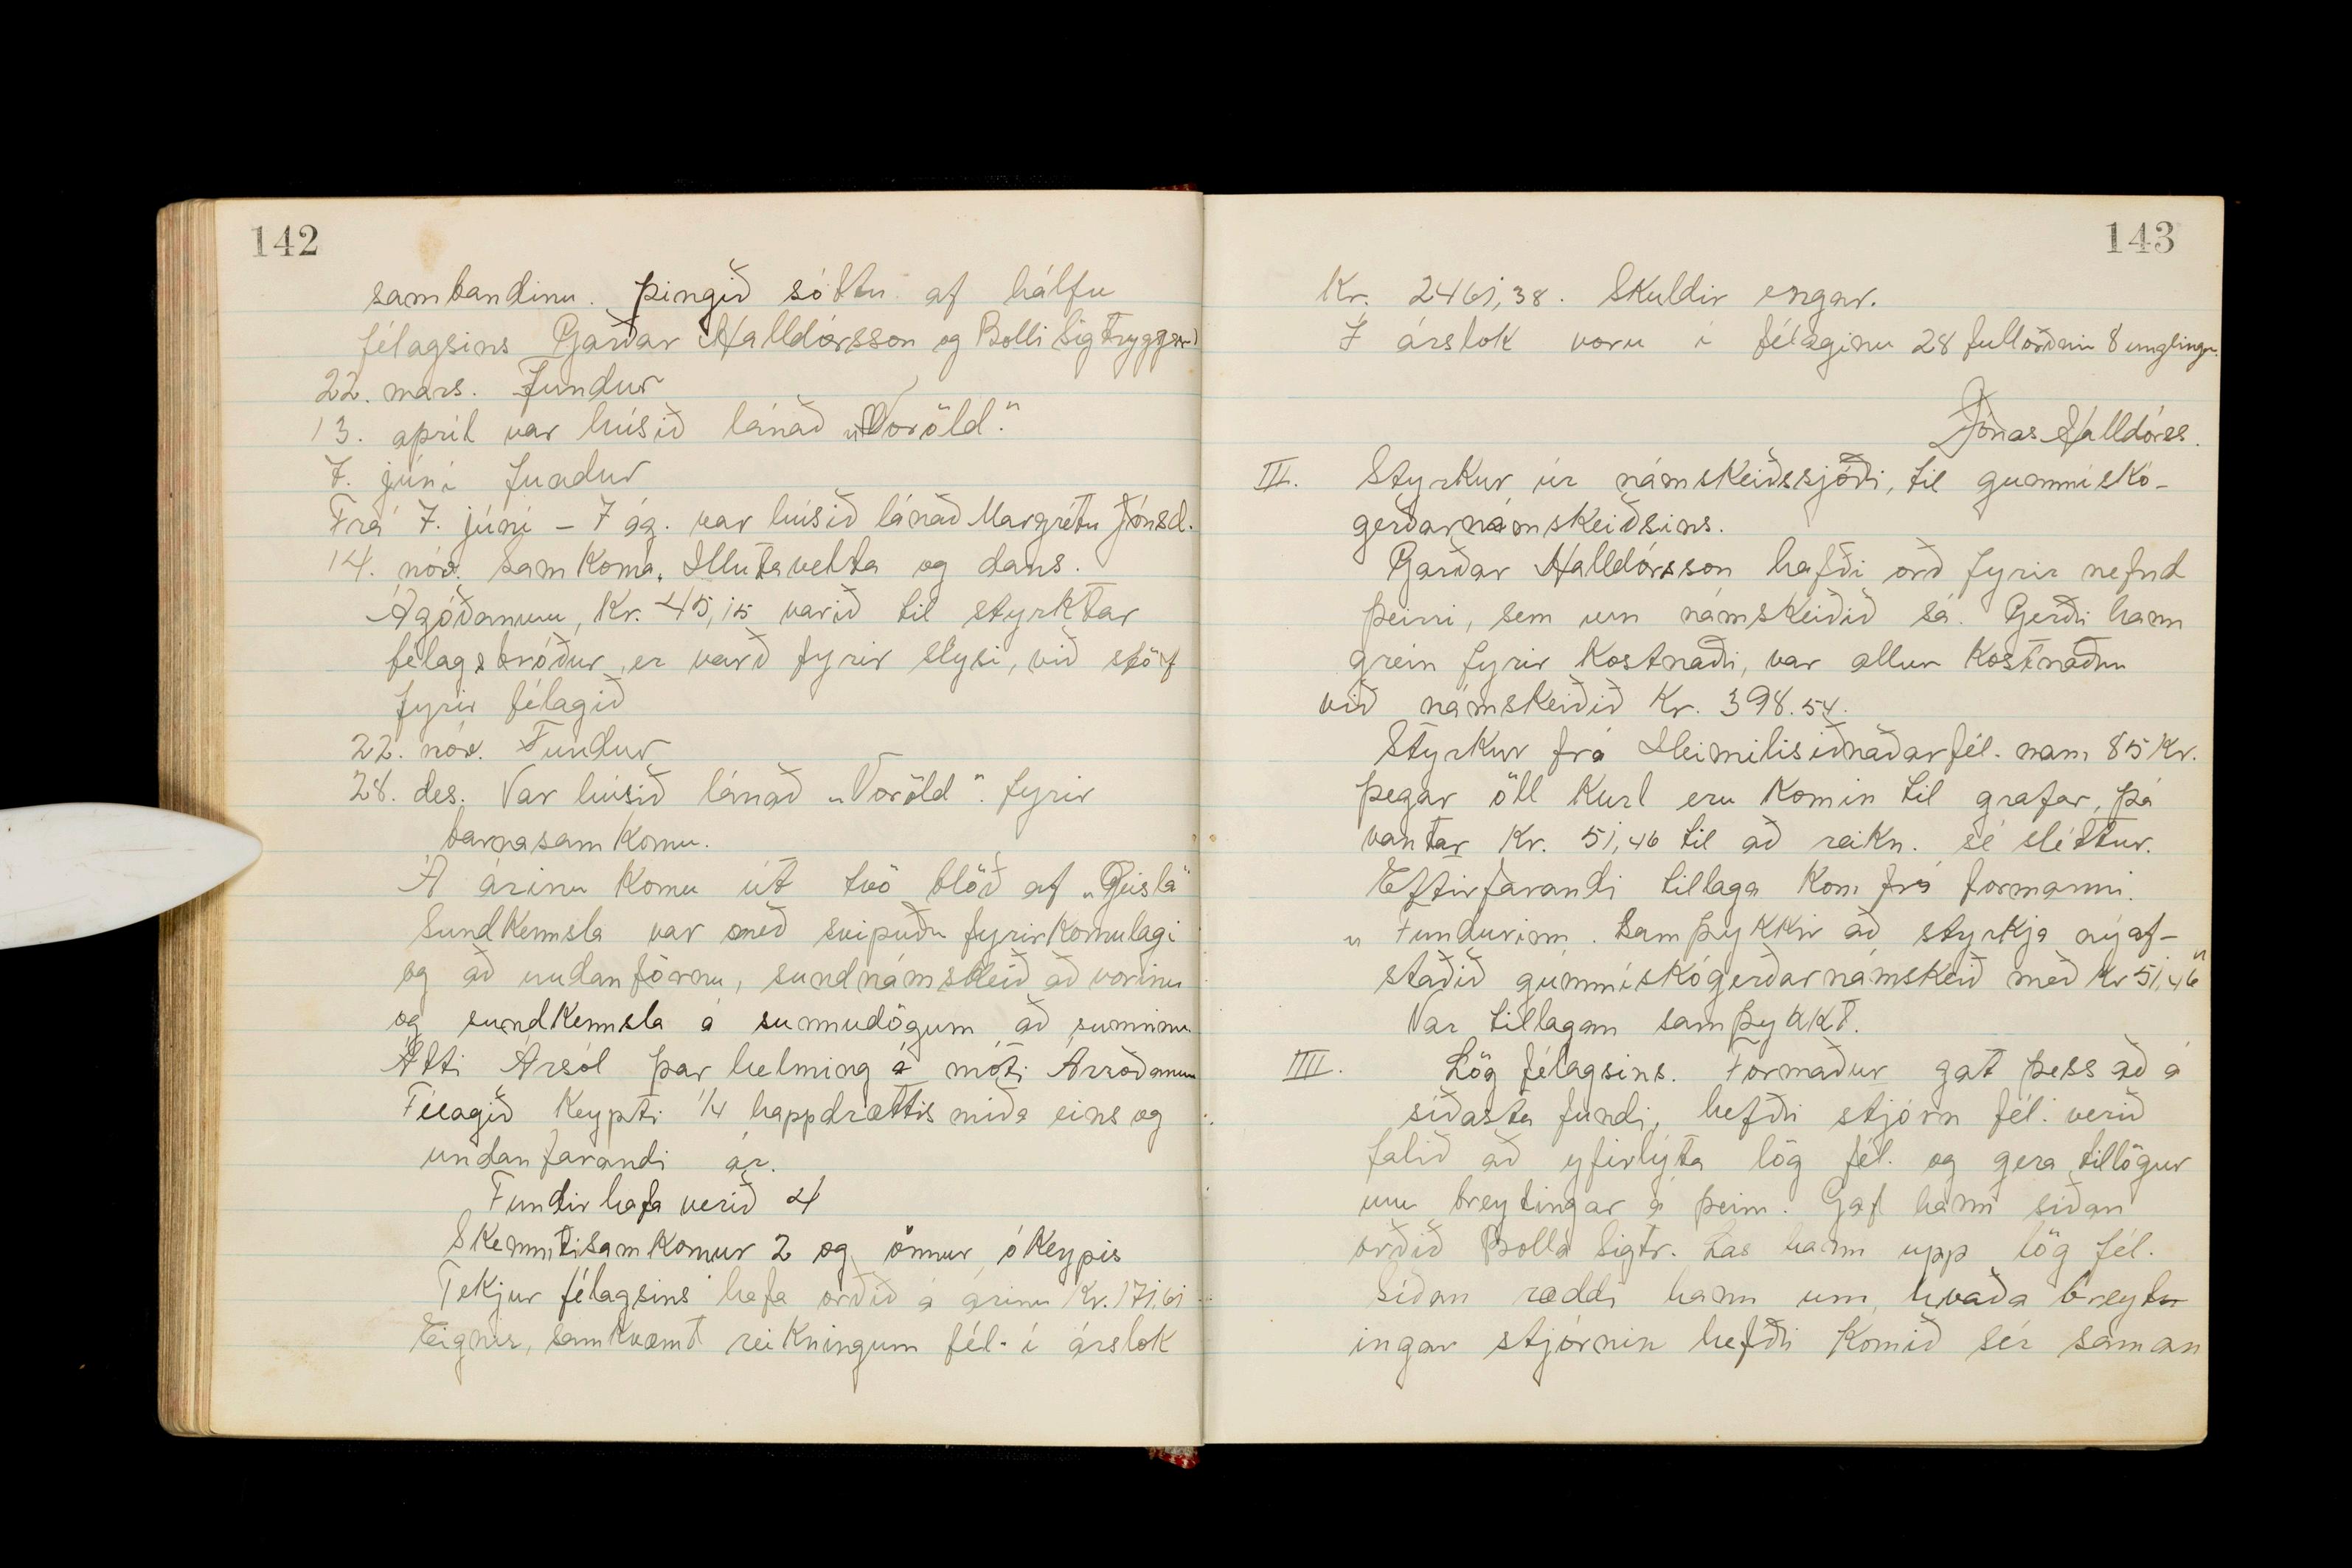 142
sambandinu. Þingið sóttu af hálfu
félagsins Garðar Halldórsson og Bolli Sigtryggss.
22. mars. Fundur
13. apríl var húsið lánað „Voröld“.
7. júní fundur
Frá 7. júní - 7 ág. var húsið lánað Margrétu Jónsd.
14. nóv. Samkoma. Hlutavelta og dans.
Ágóðanum, Kr. 45,15 varið til styrktar
félagsbróður, er varð fyrir slysi, við störf
fyrir félagið
22. nóv. Fundur
28. des. Var húsið lánað „Voröld“. fyrir
barnasamkomu.
Á árinu komu út tvö blöð af „Geisla“
Sundkennsla var með svipuðu fyrirkomulagi
og að undanförnu, sundnámskeið að vorinu
og sundkennsla á sunnudögum að sumrinu
Átti Ársól þar helming á móti Árroðanum
Félagið keypti 1/4 happdrættismiða eins og
undanfarandi ár.
Fundir hafa verið 4
Skemmtisamkomur 2 og önnur ókeypis
Tekjur félagsins hafa orðið á árinu Kr. 171,61
Eignir, samkvæmt reikningum fél. í árslok
143
Kr. 2461,38. Skuldir engar.
Í árslok voru í félaginu 28 fullorðnir 8 unglingar.
Jónas Halldórss.
III. Styrkur úr námskeiðssjóði, til gummískó-
gerðarnámskeiðsins.
Garðar Halldórsson hafði orð fyrir nefnd
þeirri, sem um námskeiðið sá. Gerði hann
grein fyrir kostnaði, var allur kostnaður
við námskeiðið Kr. 398.54.
Styrkur frá Heimilisiðnaðarfél. nam 85 Kr.
Þegar öll kurl eru komin til grafar, þá
vantar Kr. 51,46 til að reikn. sé sléttur.
Eftirfarandi tillaga kom frá formanni.
„Fundurinn. Samþykkir að styrkja nýaf-
staðið gúmmískógerðarnámskeið með Kr 51,46“
Var tillagan samþykkt.
IIII. Lög félagsins. Formaður gat þess að á
síðasta fundi, hefði stjórn fél. verið
falið að yfirlýta lög fél. og gera tillögur
um breytingar á þeim. Gaf hann síðan
orðið Bolla Sigtr. Las hann upp lög fél.
Síðan ræddi hann um, hvaða breyt-
ingar stjórnin hefði komið sér saman